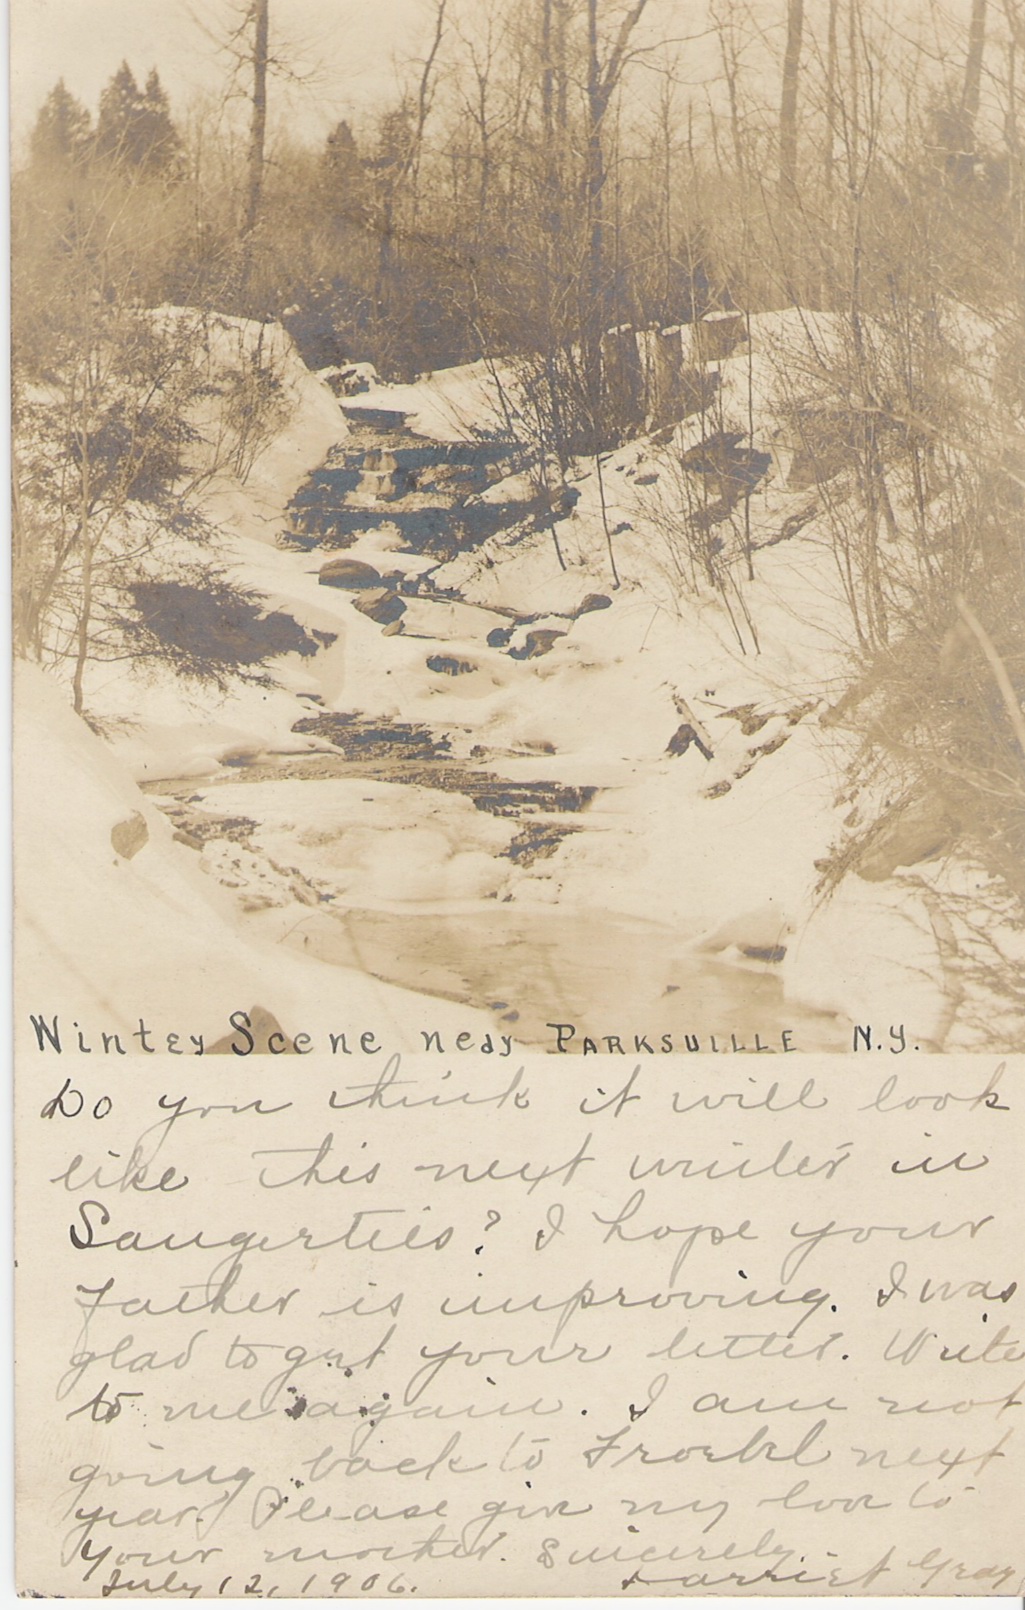 Winter Scene near PARKSVILLE N.Y.
Do you think it will look
like this next winter in
Saugerties? I hope your
father is improving. I was
glad to get your letter. Write
to me again. I am not
going back to Froebel next
year. Please give my love to
your mother. Sincerely,
July 12, 1906. Harriet Gray